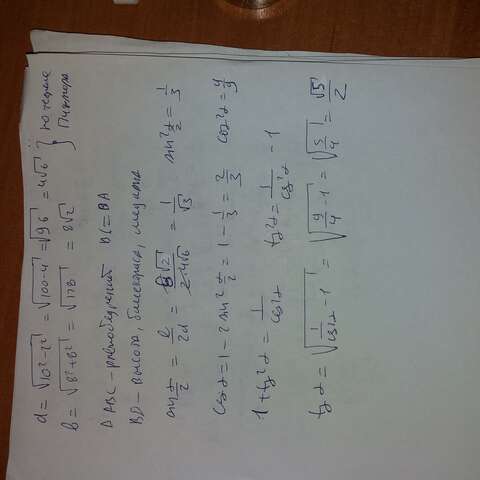 d = √(10²-2²) = √(100-4) = √96 = 4√6 } по теореме
b = √(8²+8²) = √128 = 8√2 } Пифагора
Δ ABC - равнобедренный BC = BA
BD - высота, биссектриса, медиана
sin α/2 = b/2d = 8√2/2·4√6 = 1/√3 sin² α/2 = 1/3
cos α = 1 - 2 sin² α/2 = 1 - 1/3 = 2/3 cos² α = 4/9
1 + tg² α = 1/cos² α tg² α = 1/cos² α - 1
tg α = √(1/cos² α - 1) = √(9/4 - 1) = √(5/4) = √5/2